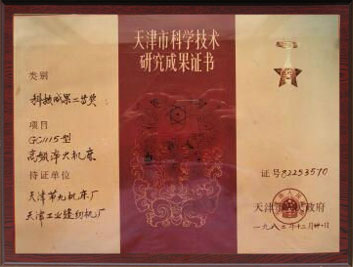 天津市科学技术
研究成果证书
类别
科技成果二等奖
项目
GC1115-型
高频淬火机床
持证单位
天津市九机床厂
天津工业缝纫机厂
证号82253570
天津市人民政府
一九八三年十二月